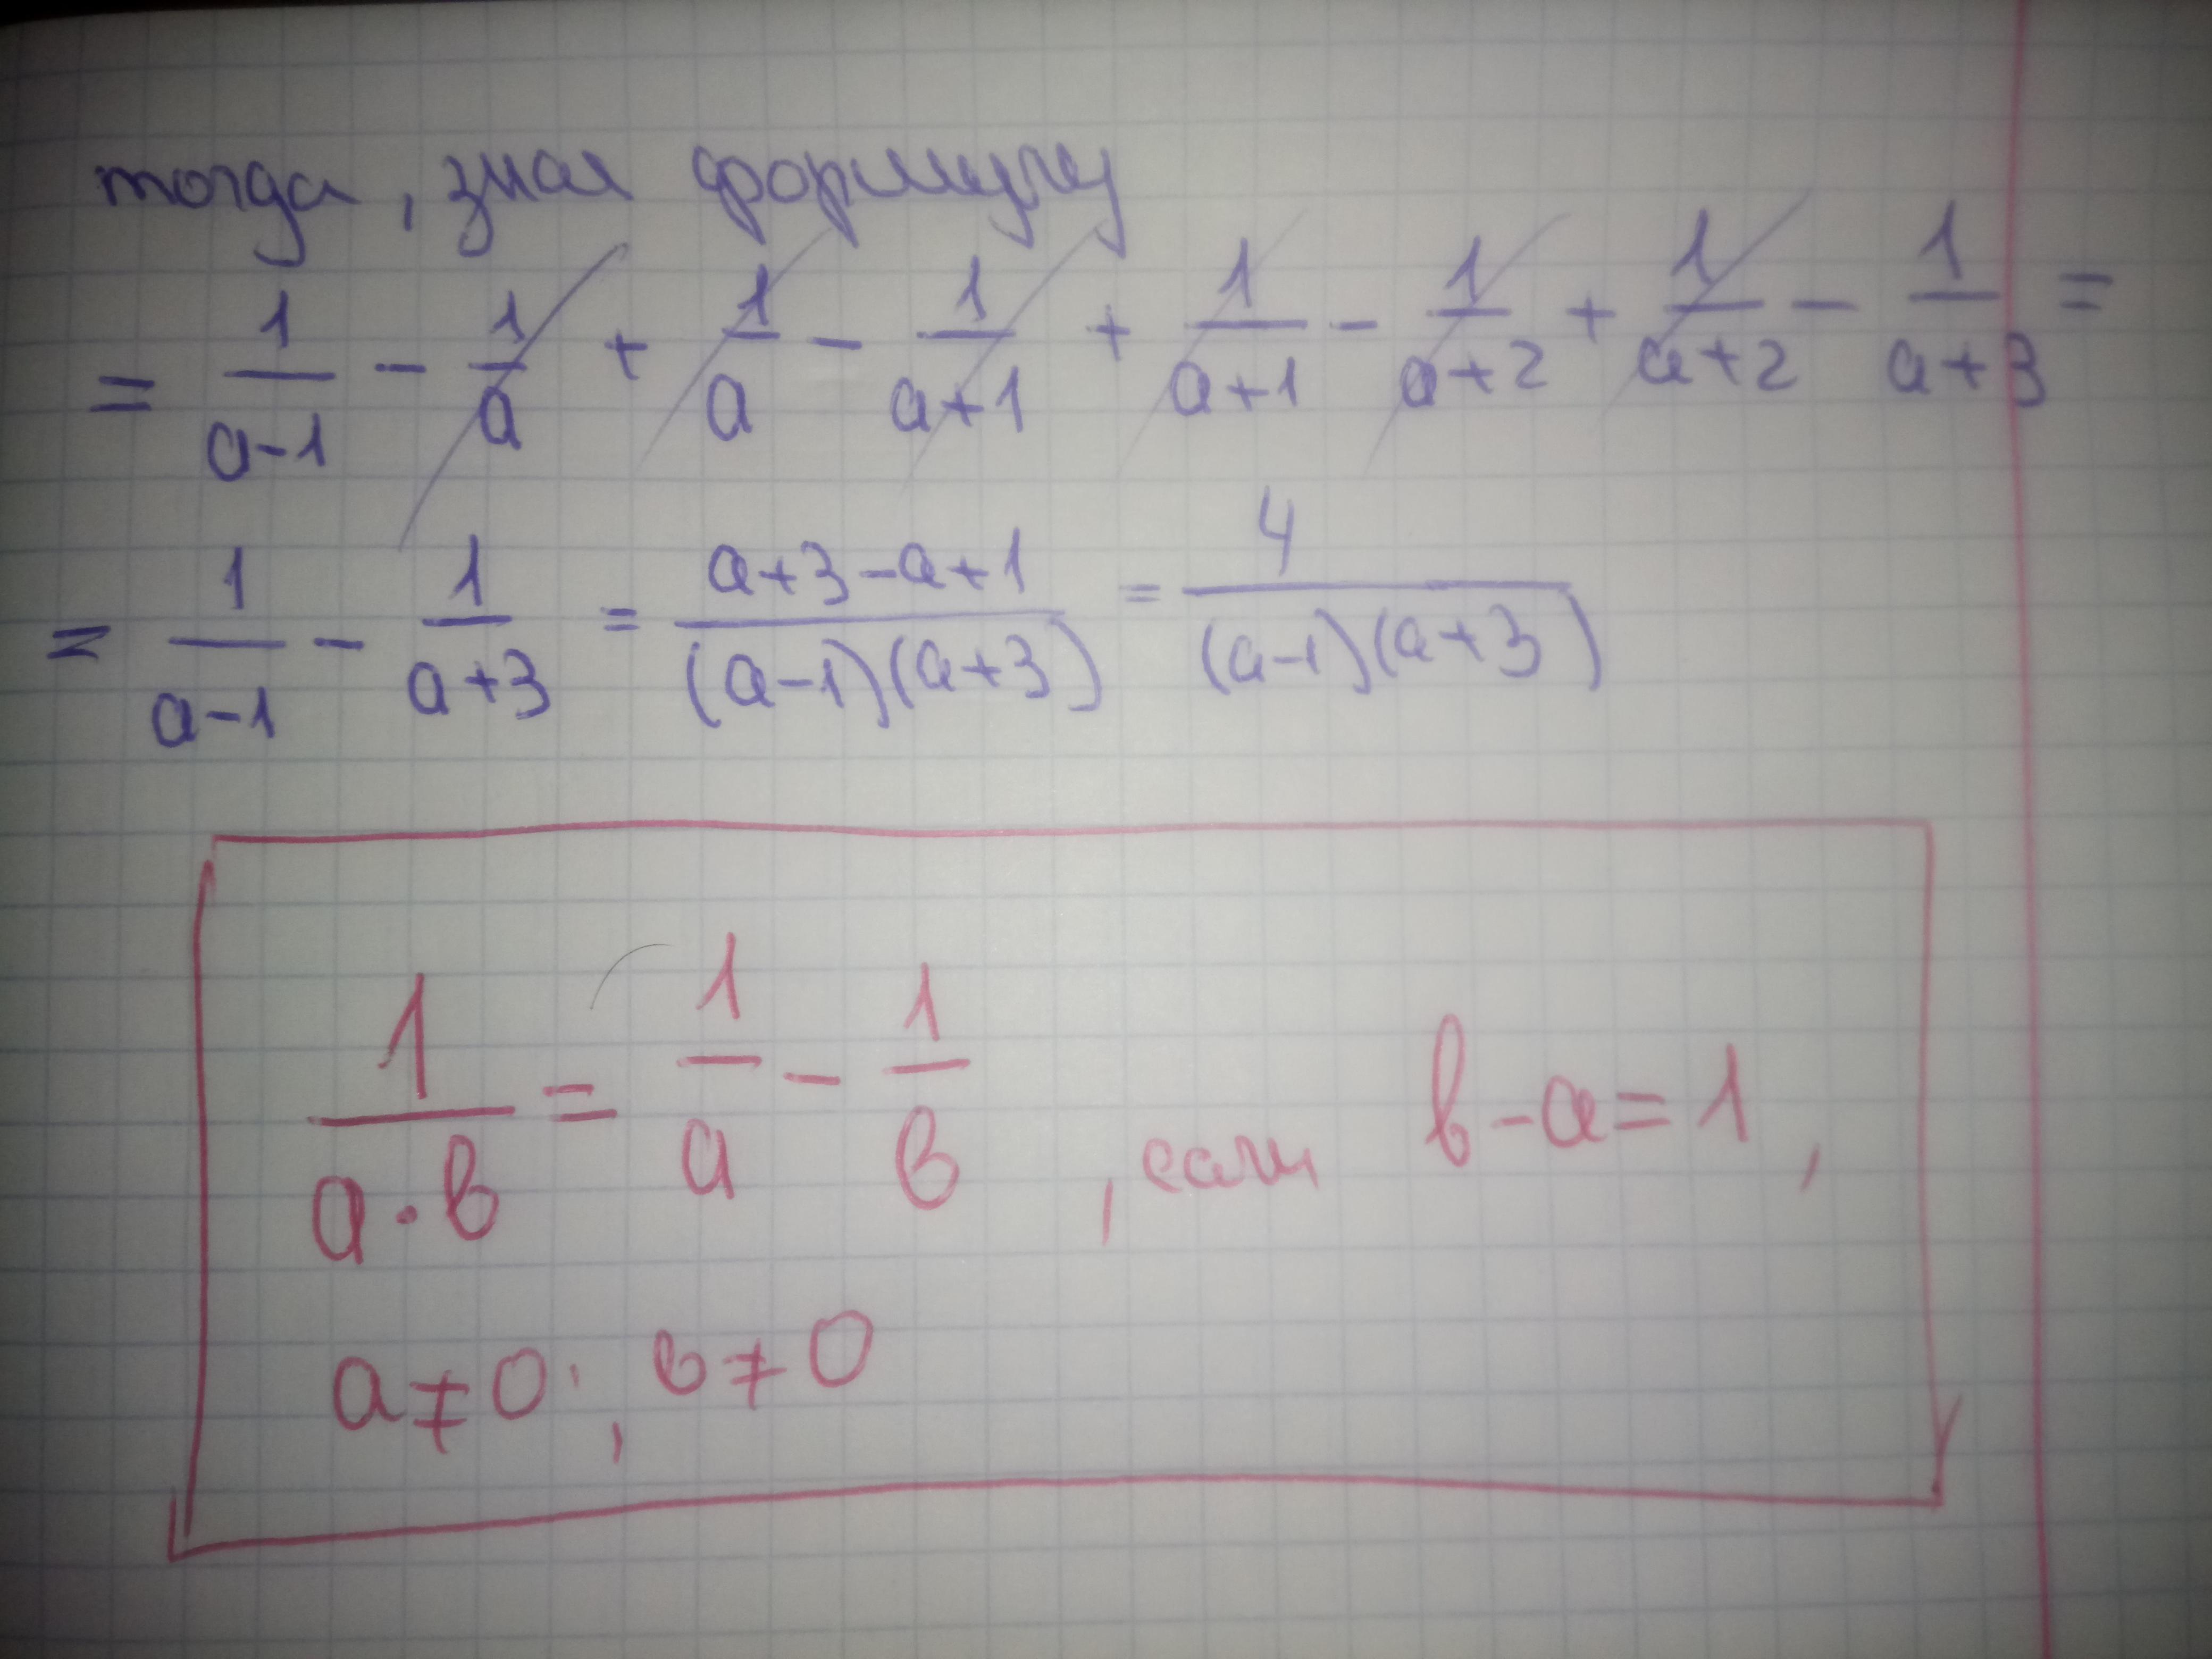 тогда, зная формулу
= 1/(a-1) - 1/a + 1/a - 1/(a+1) + 1/(a+1) - 1/(a+2) + 1/(a+2) - 1/(a+3) =
= 1/(a-1) - 1/(a+3) = (a+3-a+1)/((a-1)(a+3)) = 4/((a-1)(a+3))
1/(a·в) = 1/a - 1/в , если в-a=1,
a≠0; в≠0